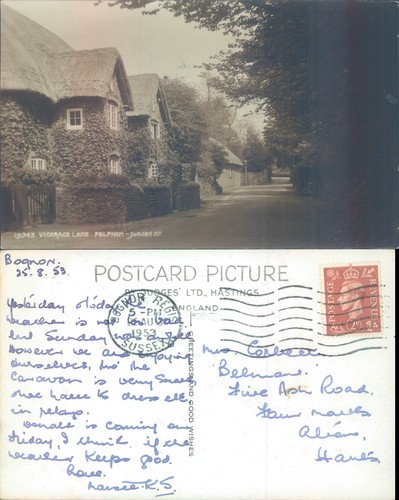 19343. VICARAGE LANE FELPHAM - JUDGES LTD
Bognor.
15.8.53.
POSTCARD PICTURE
BY JUDGES' LTD., HASTINGS
ENGLAND
GREETINGS AND GOOD WISHES
BOGNOR REGIS
5 - PM
AUG
1953
SUSSEX
POSTAGE
REVENUE
Yesterday & today the
weather is not too bad,
but Sunday was a gale
However we are enjoying
ourselves, tho' the
Caravan is very small
we have to dress etc
in relays.
Donald is coming on
Friday, I think if the
weather keeps good.
Love.
K.S.
Mrs
Five Ash Road.
Four Marks
Alton.
Hants.